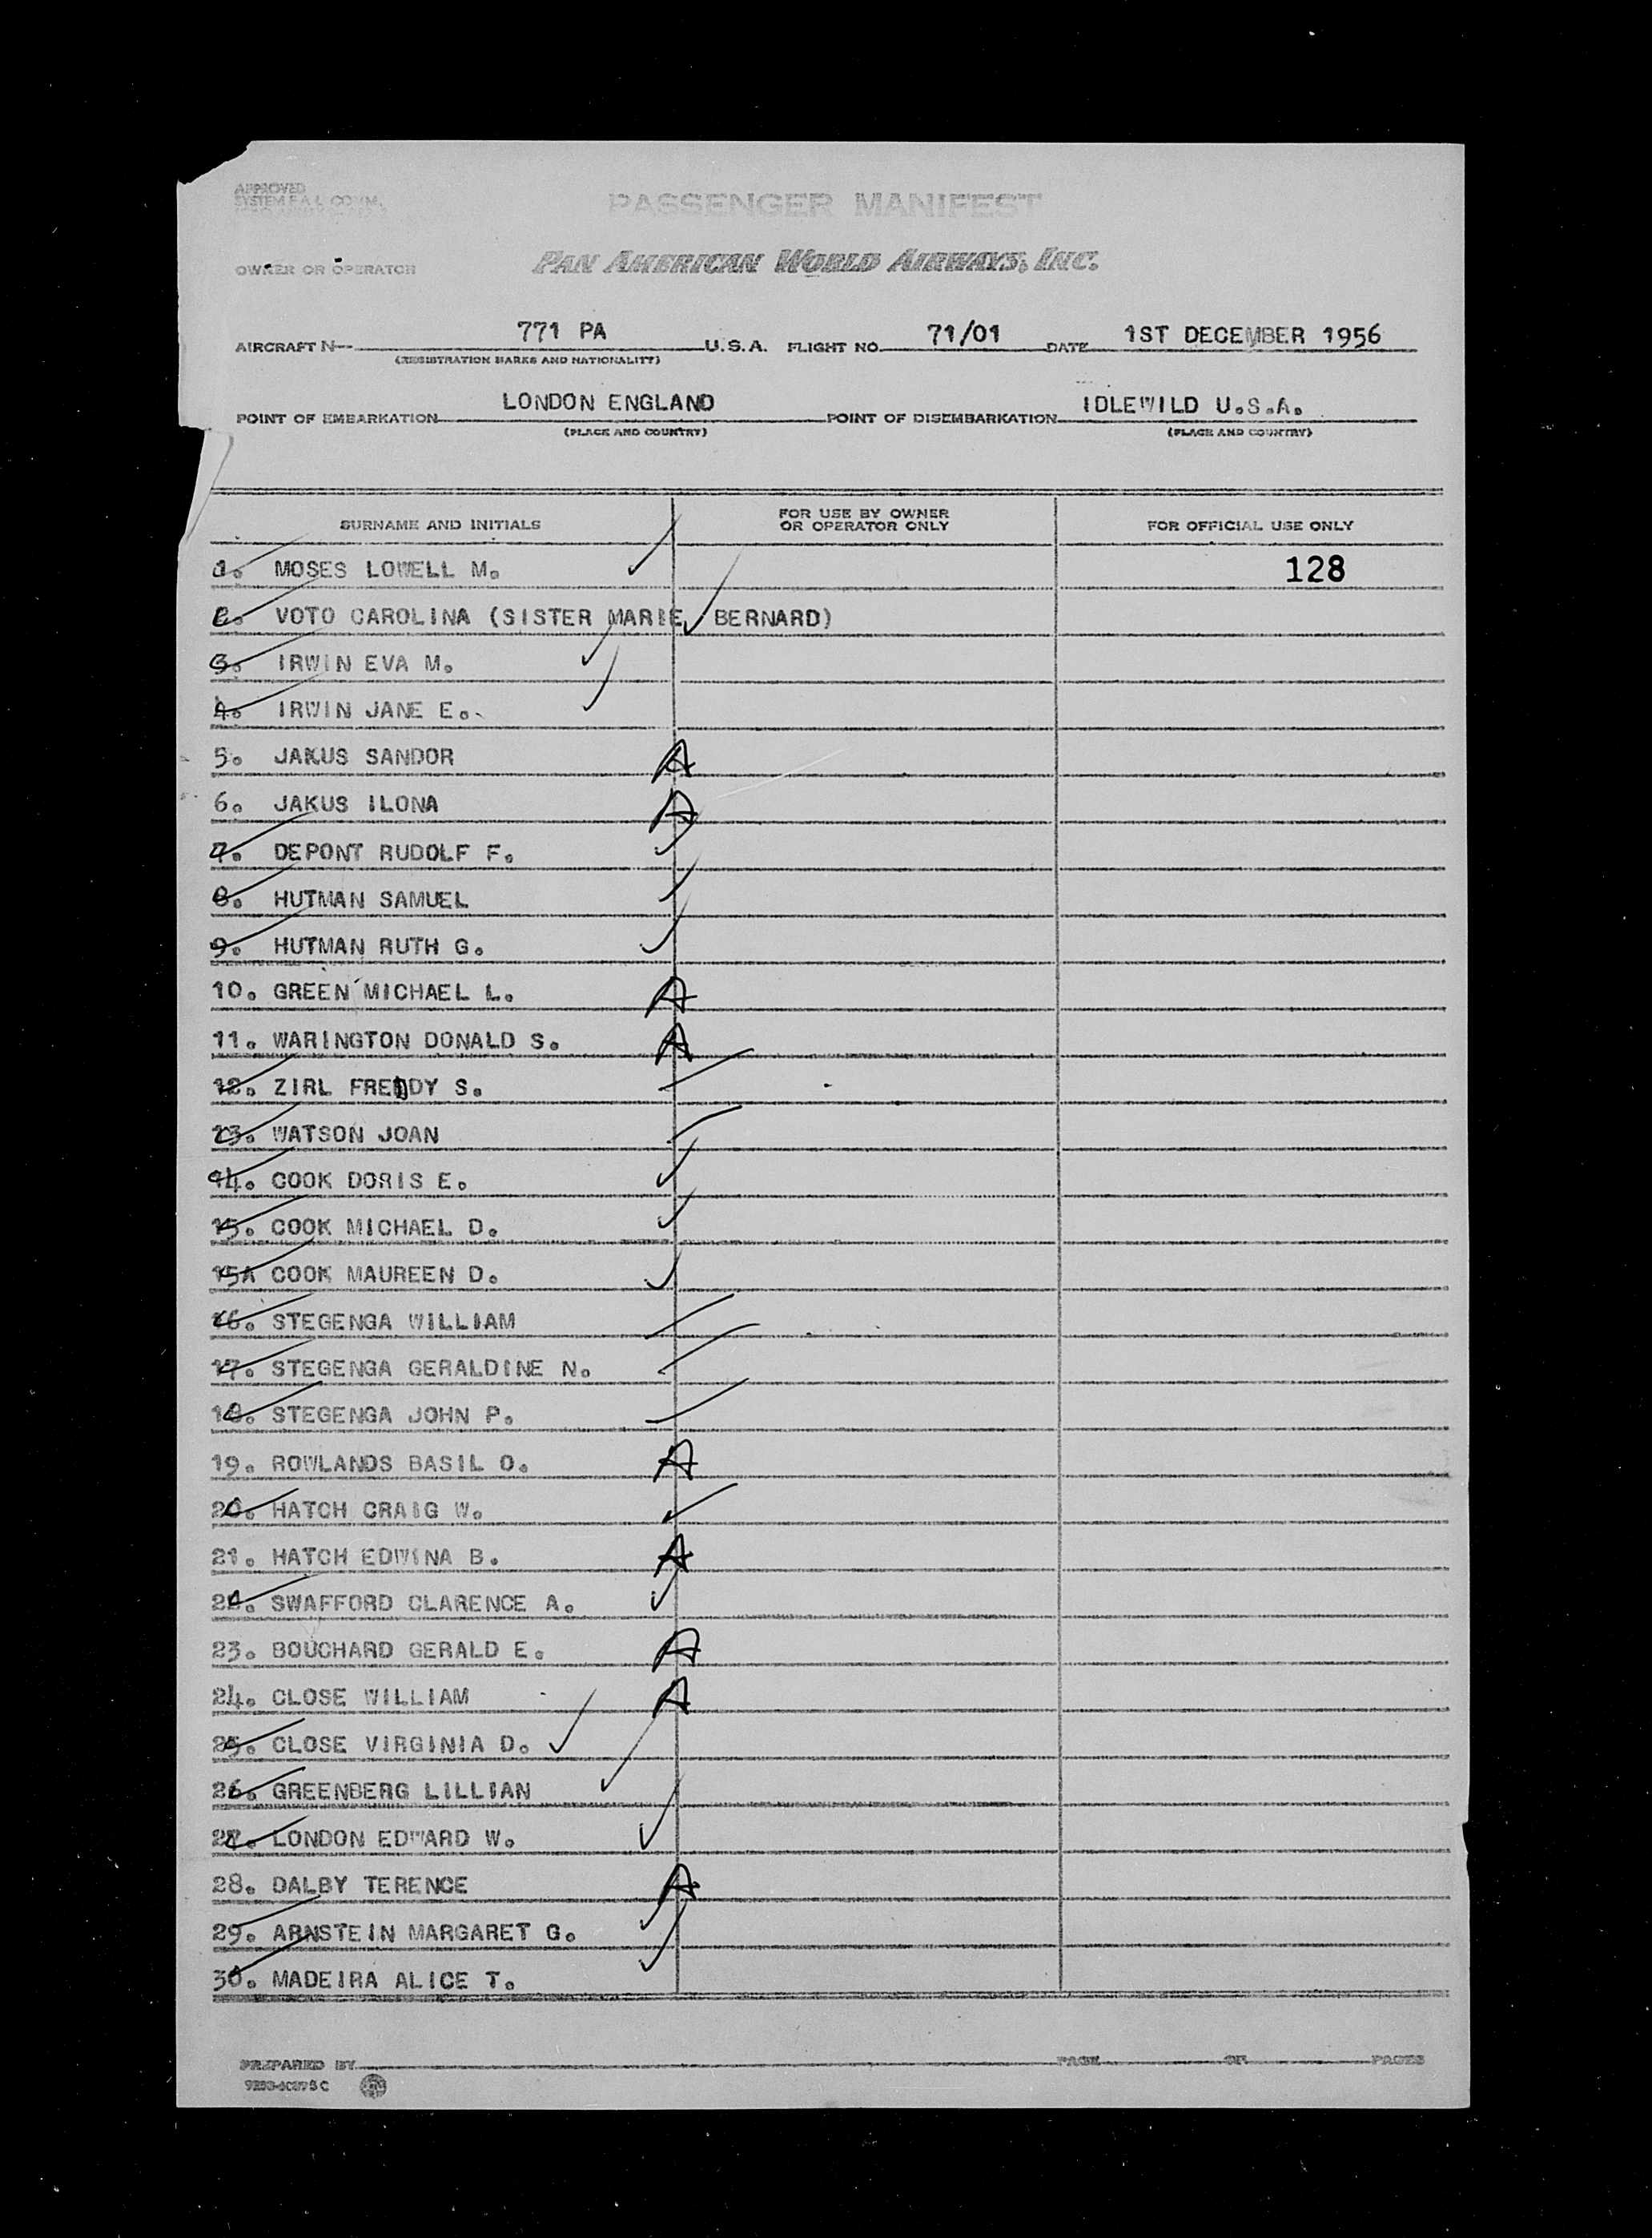 APPROVED
SYSTEM F.A.L. COMM.
PASSENGER MANIFEST
OWNER OR OPERATOR PAN AMERICAN WORLD AIRWAYS, INC.
AIRCRAFT N- 771 PA U.S.A. FLIGHT NO. 71/01 DATE 1ST DECEMBER 1956
(REGISTRATION MARKS AND NATIONALITY)
POINT OF EMBARKATION LONDON ENGLAND POINT OF DISEMBARKATION IDLEWILD U.S.A.
(PLACE AND COUNTRY) (PLACE AND COUNTRY)
SURNAME AND INITIALS FOR USE BY OWNER OR OPERATOR ONLY FOR OFFICIAL USE ONLY
1. MOSES LOWELL M. 128
2. VOTO CAROLINA (SISTER MARIE BERNARD)
3. IRWIN EVA M.
4. IRWIN JANE E.
5. JAKUS SANDOR A
6. JAKUS ILONA A
7. DEPONT RUDOLF F.
8. HUTMAN SAMUEL
9. HUTMAN RUTH G.
10. GREEN MICHAEL L. A
11. WARINGTON DONALD S. A
12. ZIRL FREDDY S.
13. WATSON JOAN
14. COOK DORIS E.
15. COOK MICHAEL D.
15A COOK MAUREEN D.
16. STEGENGA WILLIAM
17. STEGENGA GERALDINE N.
18. STEGENGA JOHN P.
19. ROWLANDS BASIL O. A
20. HATCH CRAIG W.
21. HATCH EDWINA B. A
22. SWAFFORD CLARENCE A.
23. BOUCHARD GERALD E. A
24. CLOSE WILLIAM A
25. CLOSE VIRGINIA D.
26. GREENBERG LILLIAN
27. LONDON EDWARD W.
28. DALBY TERENCE A
29. ARNSTEIN MARGARET G.
30. MADEIRA ALICE T.
PREPARED BY PAGE OF PAGES